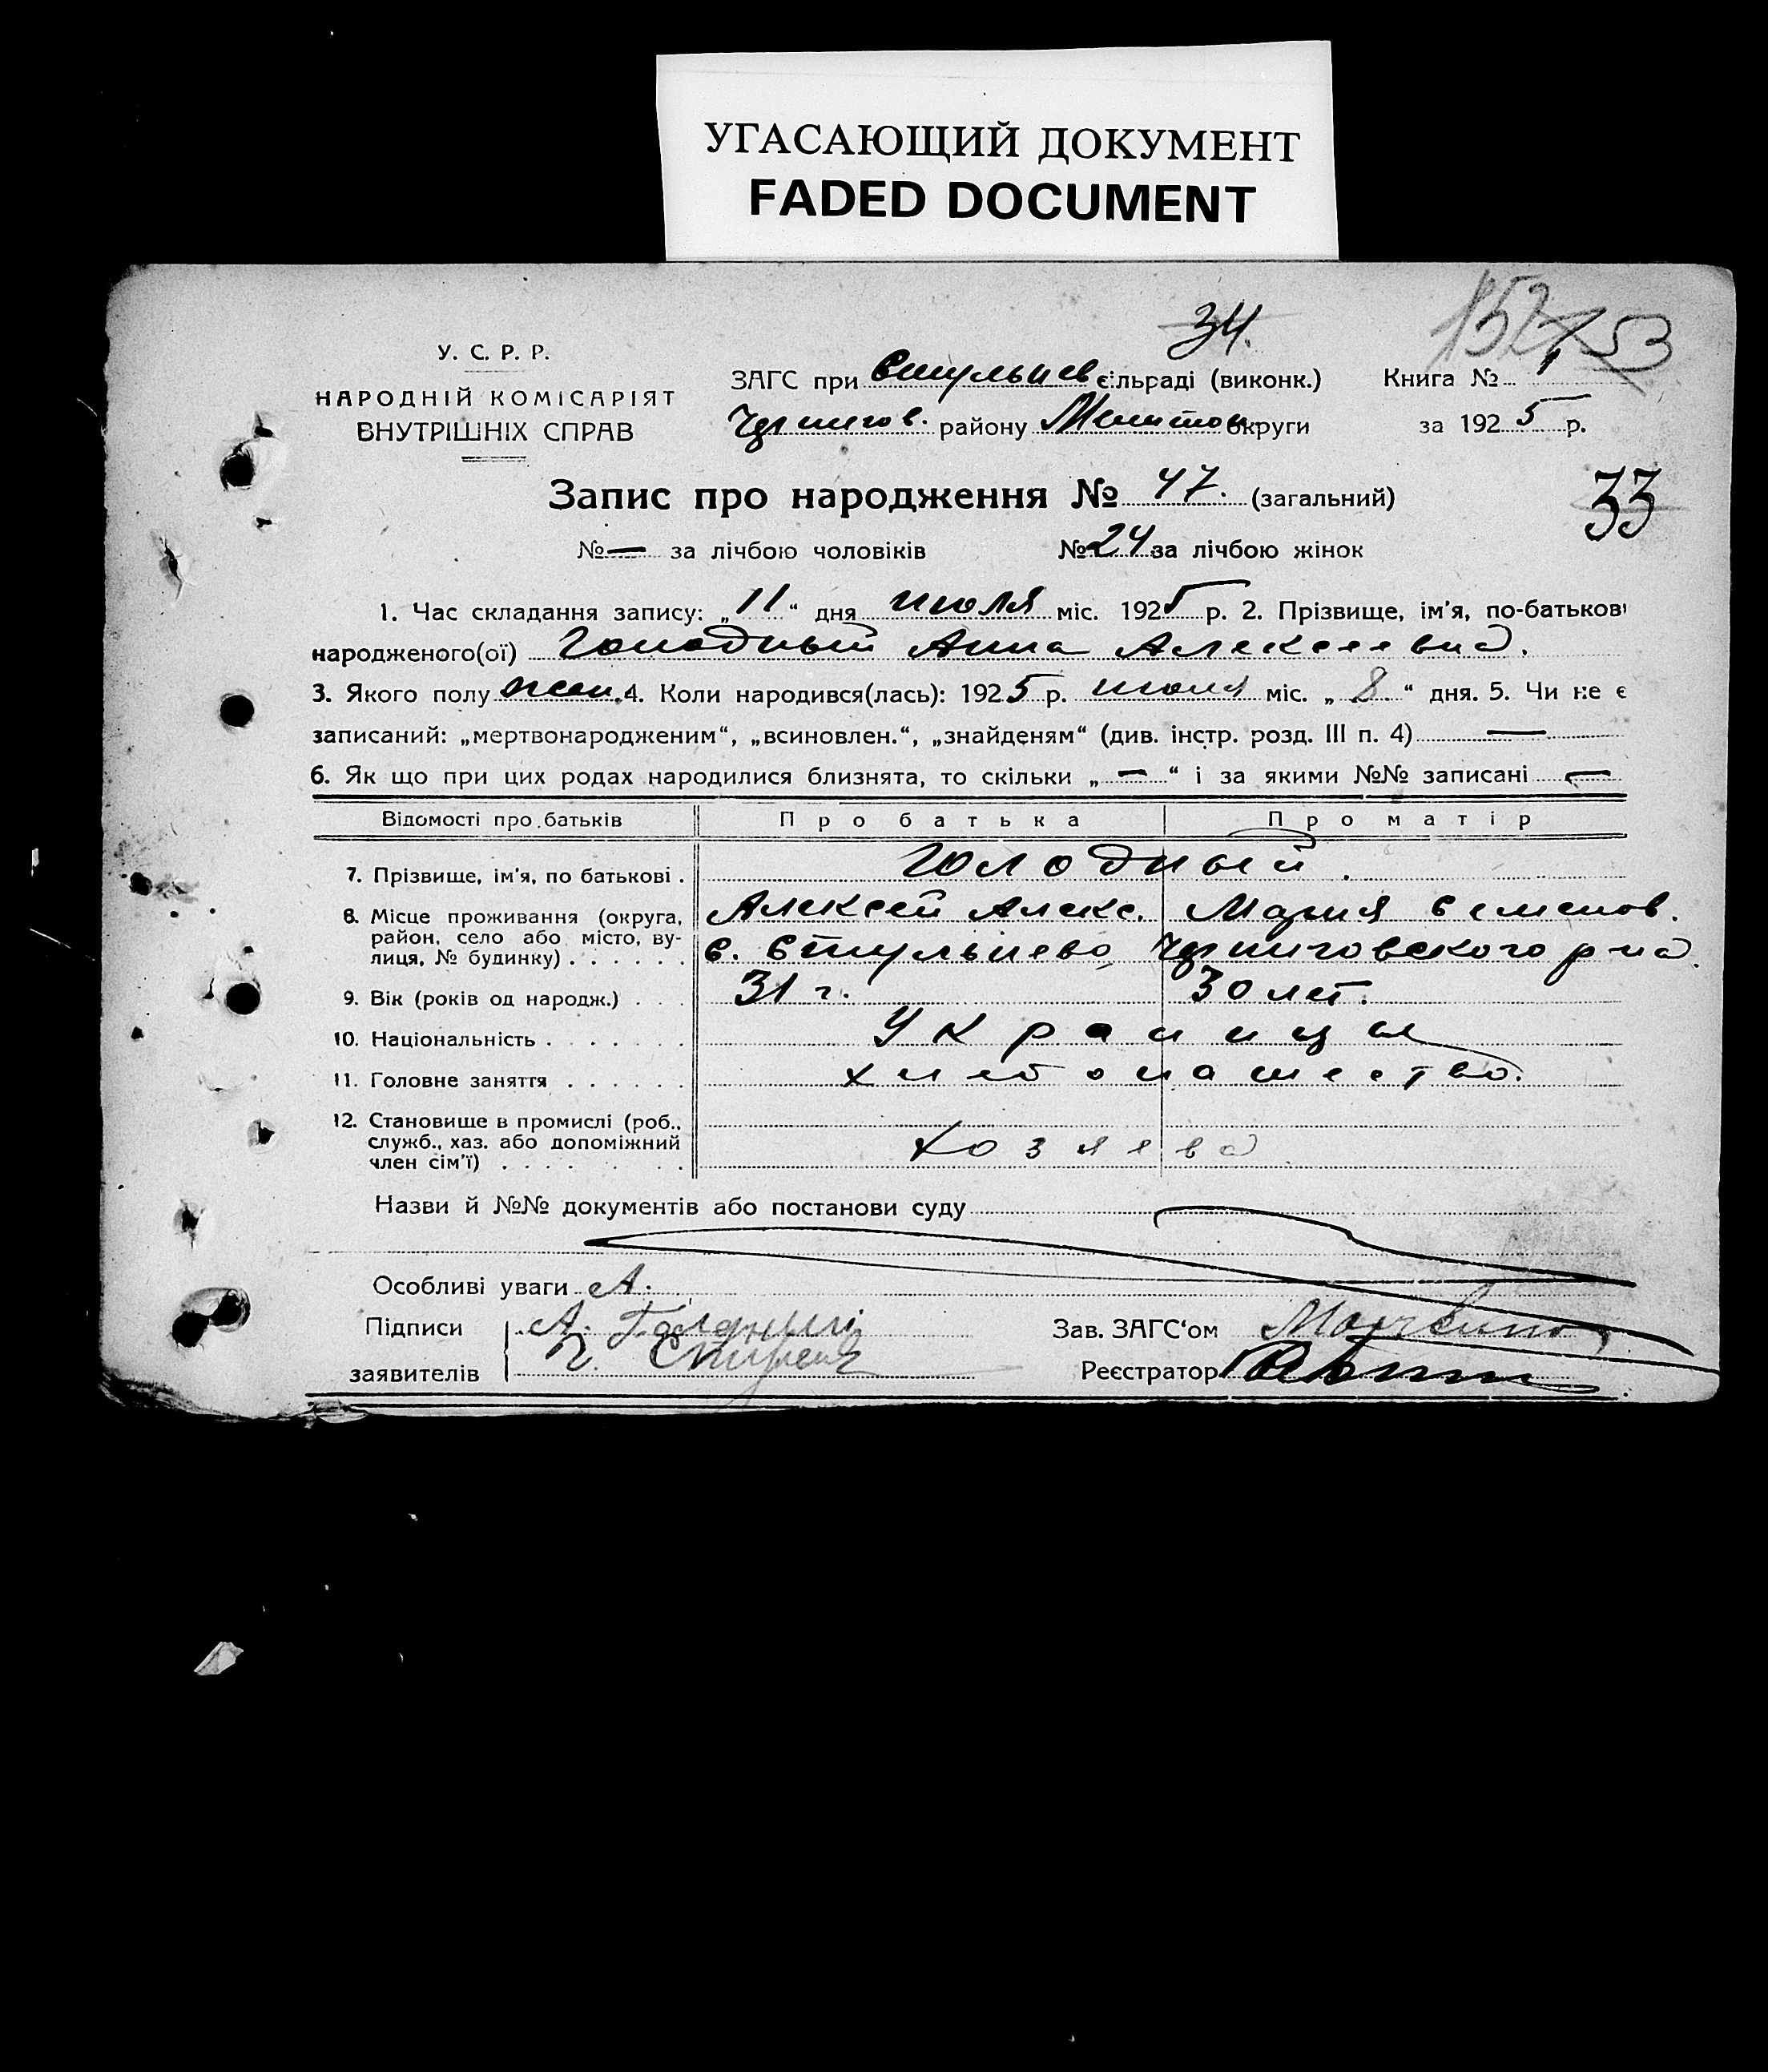 УГАСАЮЩИЙ ДОКУМЕНТ
FADED DOCUMENT
34.
152 153
У. С. Р. Р.
НАРОДНІЙ КОМІСАРІЯТ
ВНУТРІШНІХ СПРАВ
ЗАГС при Стульнев сільраді (виконк.) Книга № 1
Чернигов. району Мелитоп округи за 1925 р.
Запис про народження № 47. (загальний)
33
№ — за лічбою чоловіків № 24 за лічбою жінок
1. Час складання запису: „11“ дня июля міс. 1925 р. 2. Прізвище, ім'я, по-батькові
народженого(ої) Голодный Анна Алексеевна.
3. Якого полу жен. 4. Коли народився(лась): 1925 р. июля міс. „8“ дня. 5. Чи не є
записаний: „мертвонародженим“, „всиновлен.“, „знайденям“ (див. інстр. розд. III п. 4) —
6. Як що при цих родах народилися близнята, то скільки „—“ і за якими №№ записані —
Відомості про батьків Про батька Про матір
7. Прізвище, ім'я, по батькові . Голодный.
Алексей Алекс. Мария Семенов.
8. Місце проживання (округа, район, село або місто, ву-
лиця, № будинку) . . . . . . с. Стульнево, Черниговского р-на.
9. Вік (років од народж.) . . . 31 г. 30 лет.
10. Національність . . . . . . . Украинцы
11. Головне заняття . . . . . . хлебопашество.
12. Становище в промислі (роб.,
служб., хаз. або допоміжний
член сім'ї) . . . . . . . . Хозяева
Назви й №№ документів або постанови суду
Особливі уваги А.
Підписи А. Голодний Зав. ЗАГС‘ом
заявителів Реєстратор